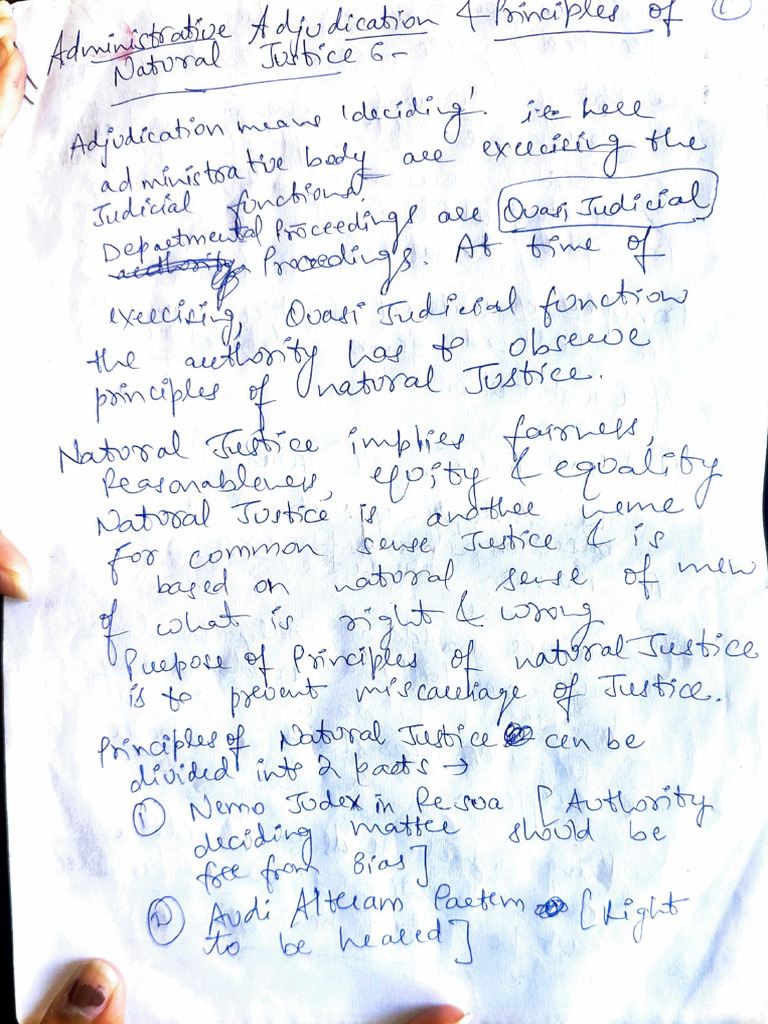 ①
Administrative Adjudication & Principles of
Natural Justice :-
Adjudication means 'deciding'. i.e. here
administrative body are exercising the
Judicial functions.
Departmental Proceedings are Quasi Judicial
authority Proceedings. At time of
exercising, Quasi Judicial function
the authority has to observe
principles of natural Justice.
Natural Justice implies fairness,
Reasonableness, equity & equality
Natural Justice is another neme
for common sense Justice & is
based on natural sense of men
of what is right & wrong
Purpose of Principles of natural Justice
is to prevent miscarriage of Justice.
Principles of Natural Justice can be
divided into 2 parts →
① Nemo Judex in Re sua [Authority
deciding matter should be
free from Bias]
② Audi Alteram Partem [Right
to be heared]